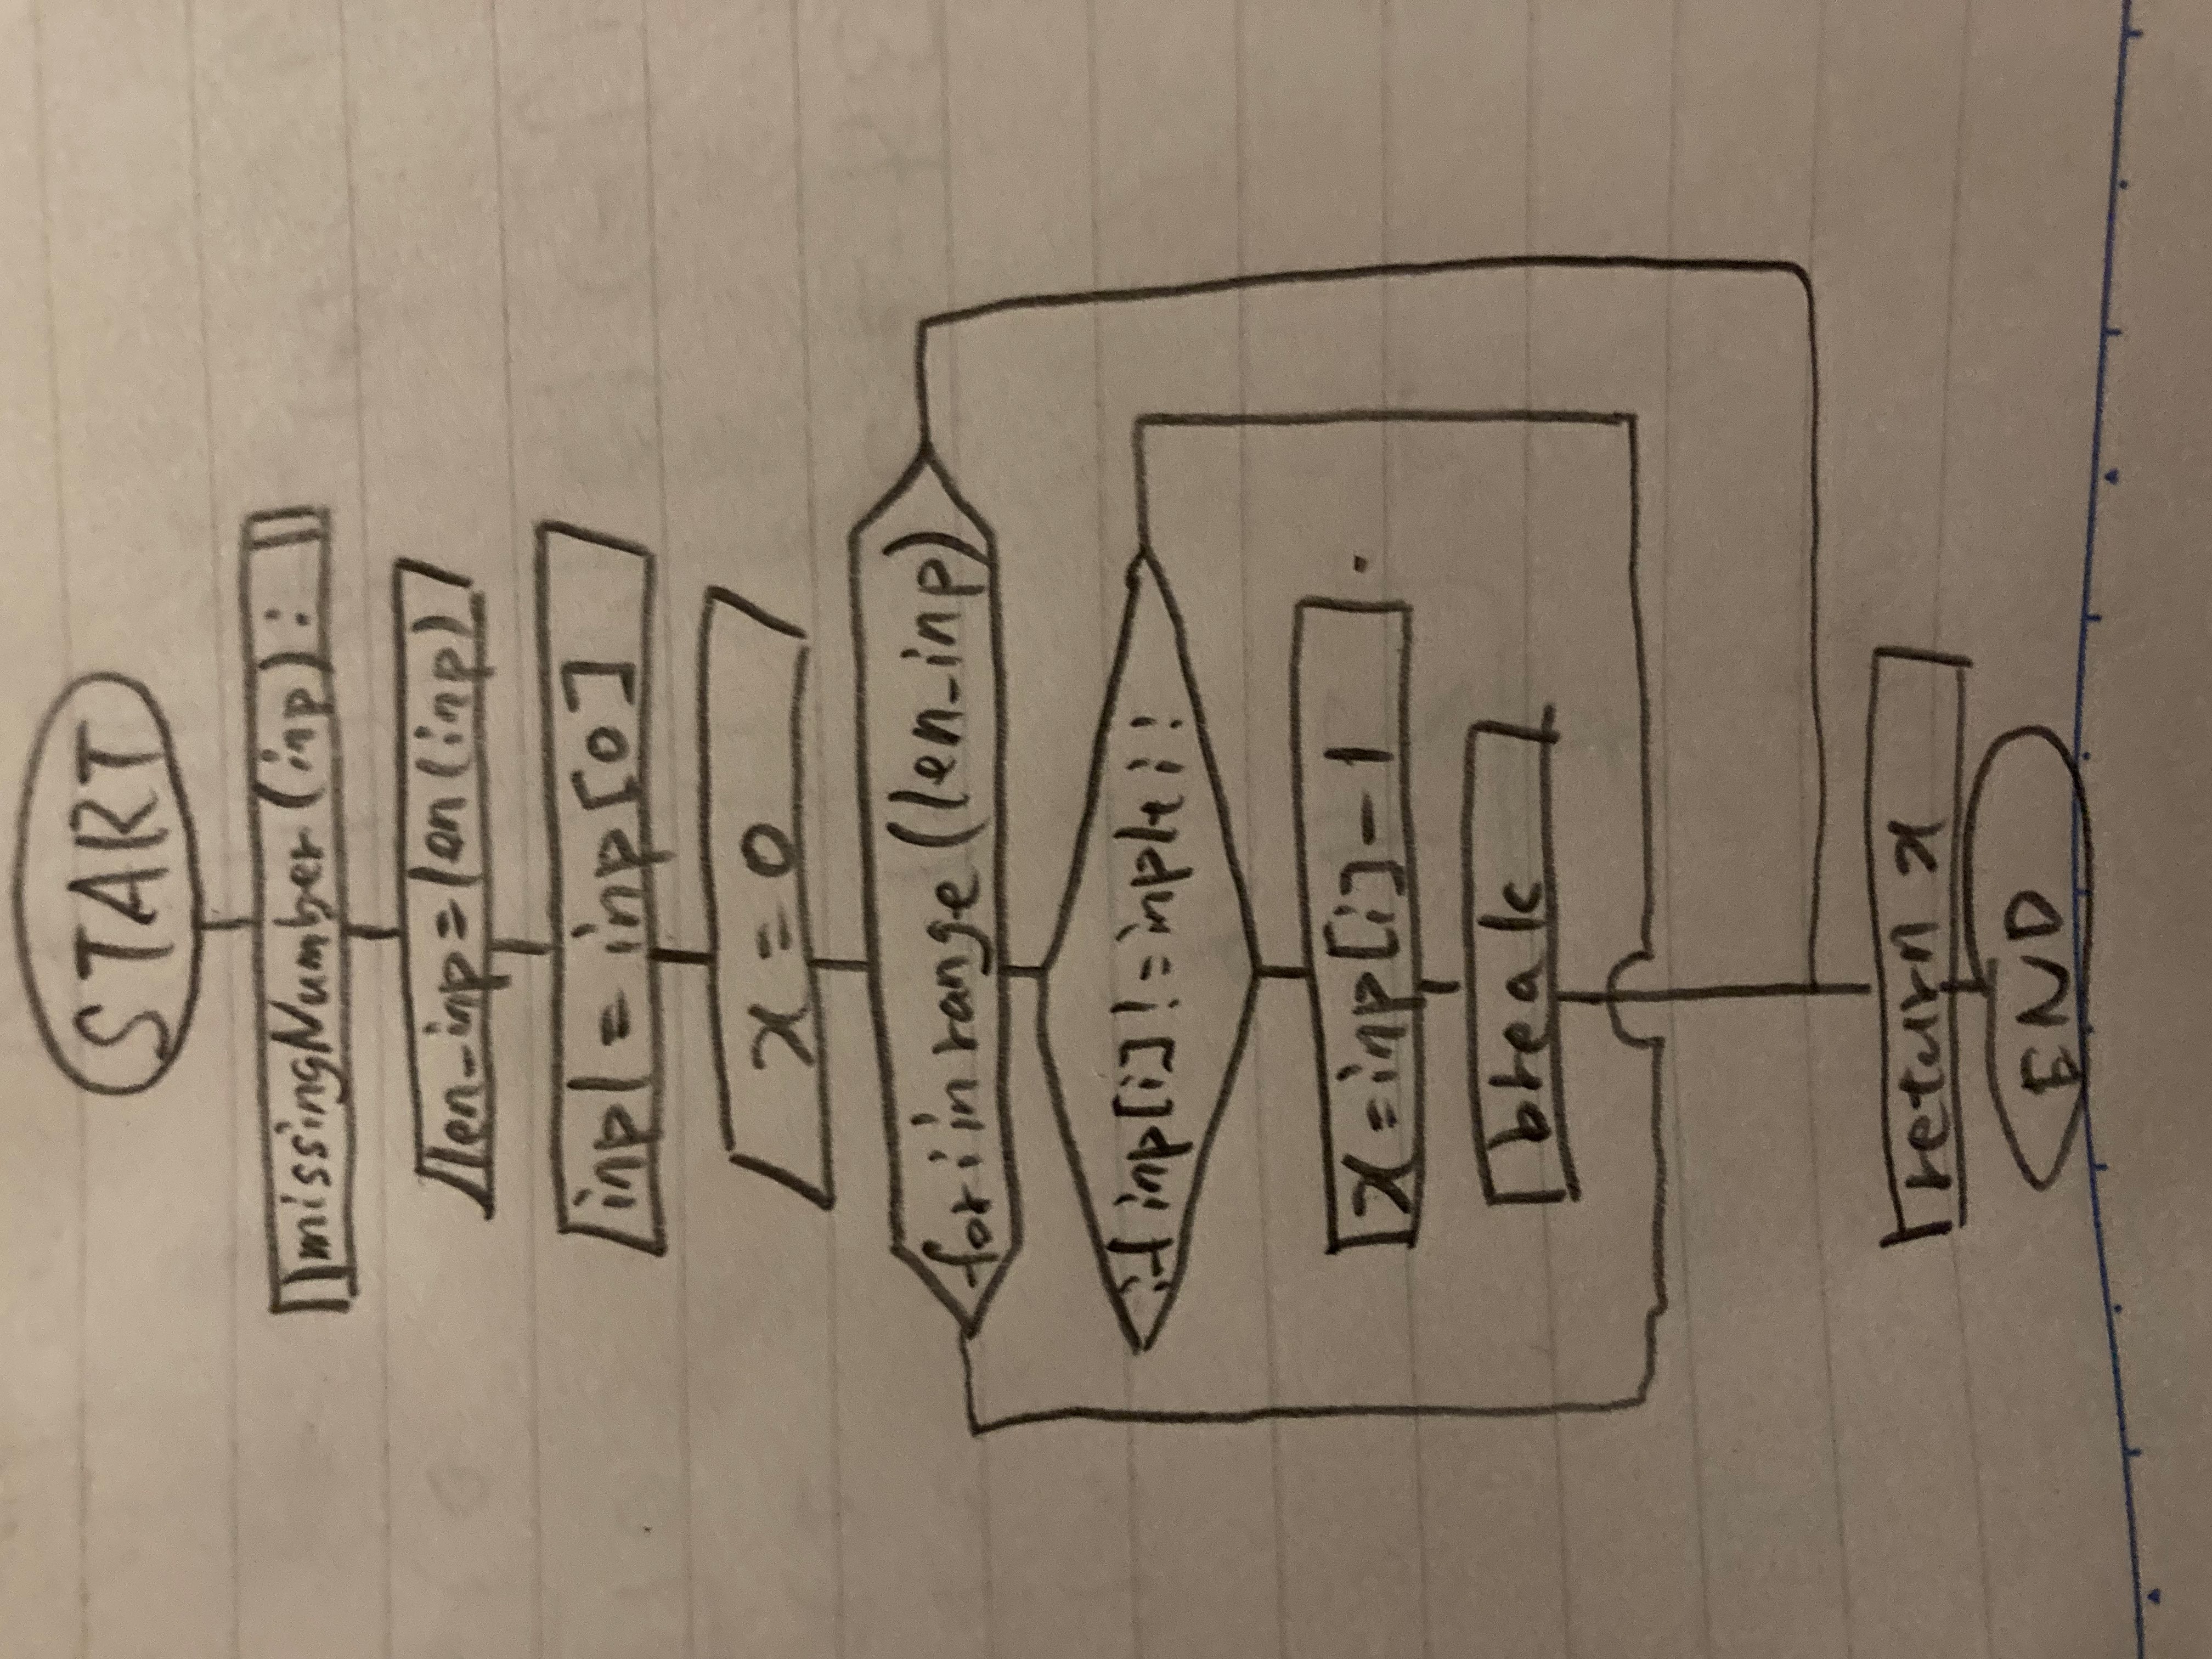 START
missingNumber(inp):
len_inp=len(inp)
inp1=inp[0]
x=0
for i in range(len_inp)
if inp[i]!=inp1+i:
x=inp[i]-1
break
return x
END